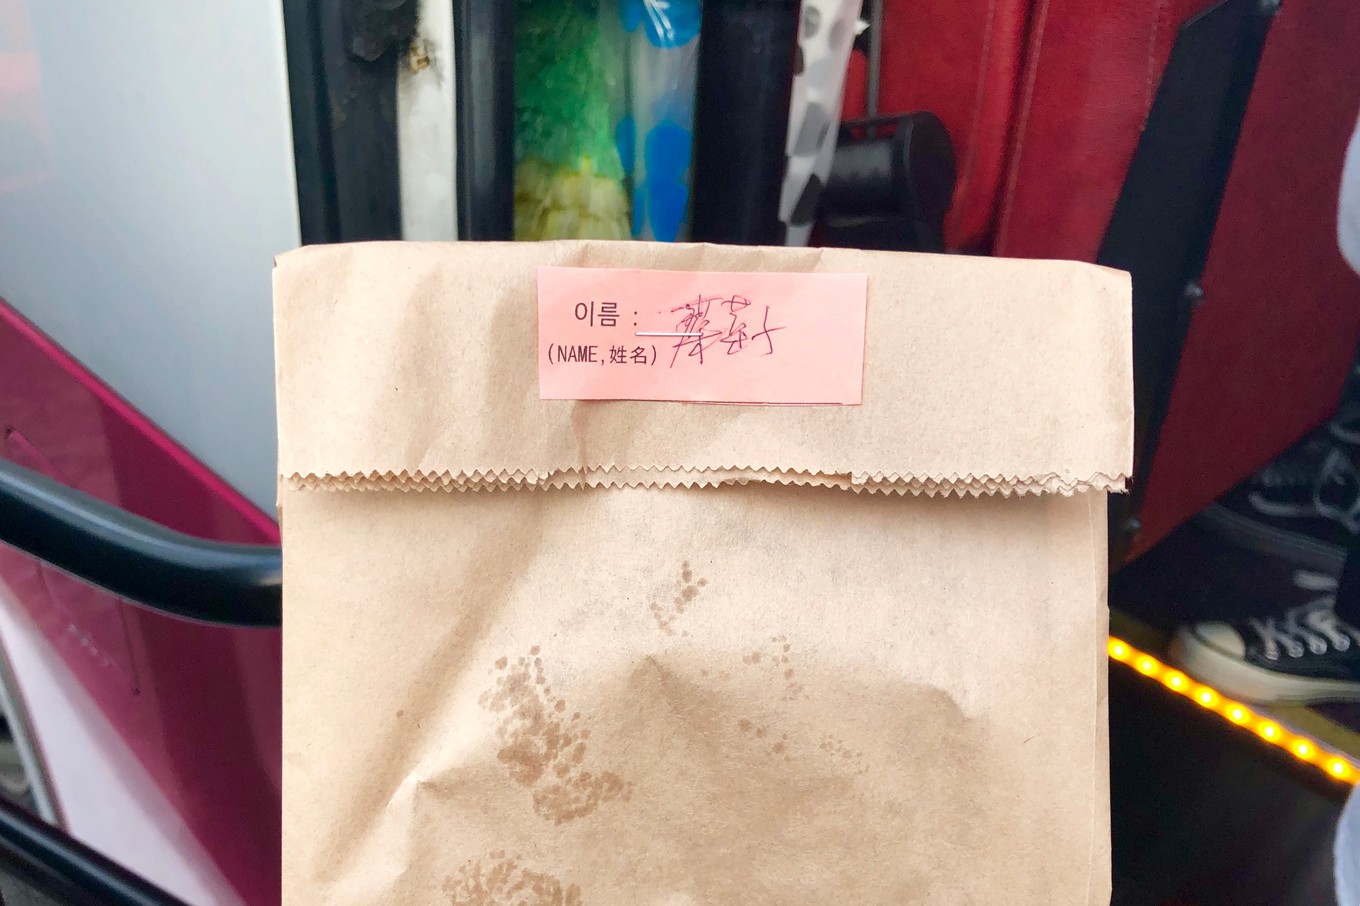 이름 : 蔡英子
(NAME,姓名)